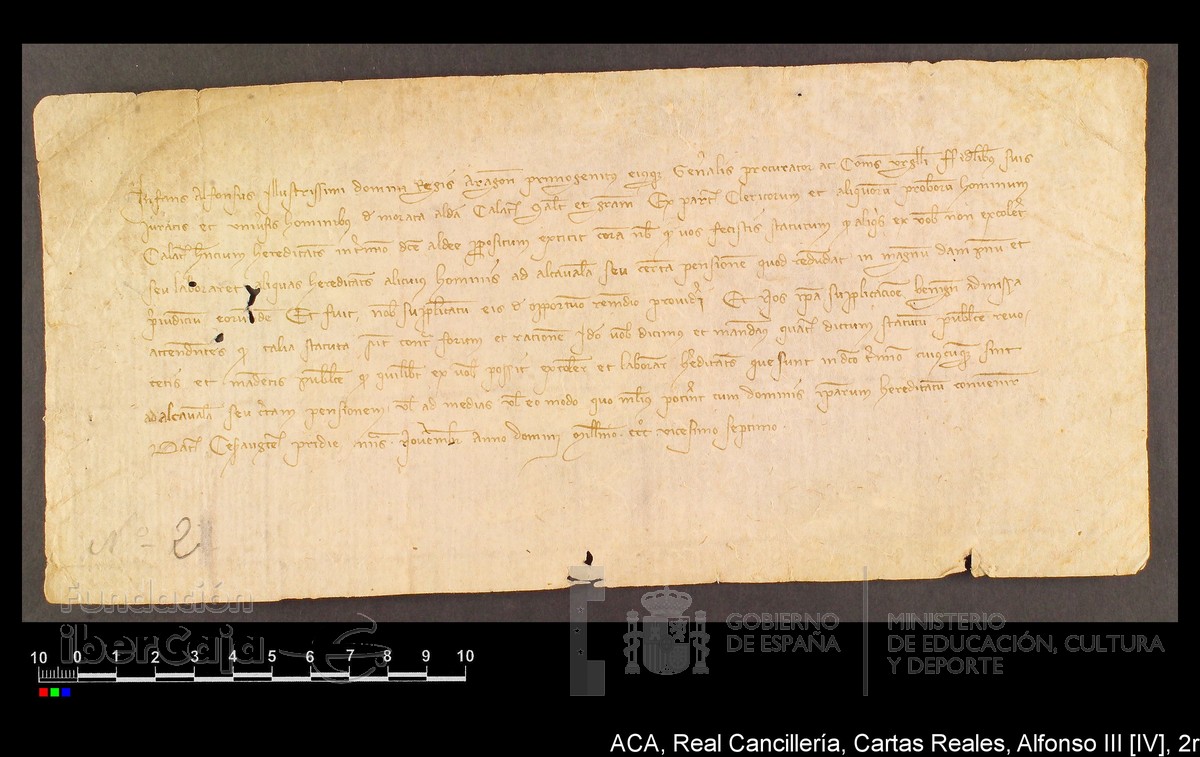 Infans Alfonsus illustrissimi domini Regis Aragon primogenitus eiusque Gen'alis procurator ac Comes Urgelli fidelibus suis
Juratis et univ'sis hominibus de morata aldea Calat' Salt' et gram' Ex part' Clericorum et aliquorum proborum hominum
Calat' h'ncium hereditates in t'mino d'ce aldee propositum extitit coram nob' quod vos fecistis statutum quod aliquis ex vob' non excoleret
seu laboraret aliquas hereditates alicuius hominis ad alcavalam seu certam pensionem quod redundat in magnum dampnum et
p'iudicium eorunde Et fuit nob' supplicatum eis de opportuno remedio provideri Et Nos ip'a supplicacione benigne admissa
attendentes quod talia statuta sunt contra forum et racionem Ideo vob' dicimus et mandamus quat' dictum statutum publice revo-
cetis et mandetis publice quod quilibet ex vob' possit excolere et laborare hereditates que sunt in d'co t'mino cuiuscumque sint
ad alcavalam seu c'tam pensionem vel ad medias vel eo modo quo melius poterint cum dominis ip'arum hereditatum convenire
Dat' Cesarauguste pridie nonas Novembr' anno domini Mill'imo CCC vicesimo septimo
Nº 2
Fundación
iberCaja
GOBIERNO
DE ESPAÑA
MINISTERIO
DE EDUCACIÓN, CULTURA
Y DEPORTE
10 0 1 2 3 4 5 6 7 8 9 10
ACA, Real Cancillería, Cartas Reales, Alfonso III [IV], 2r